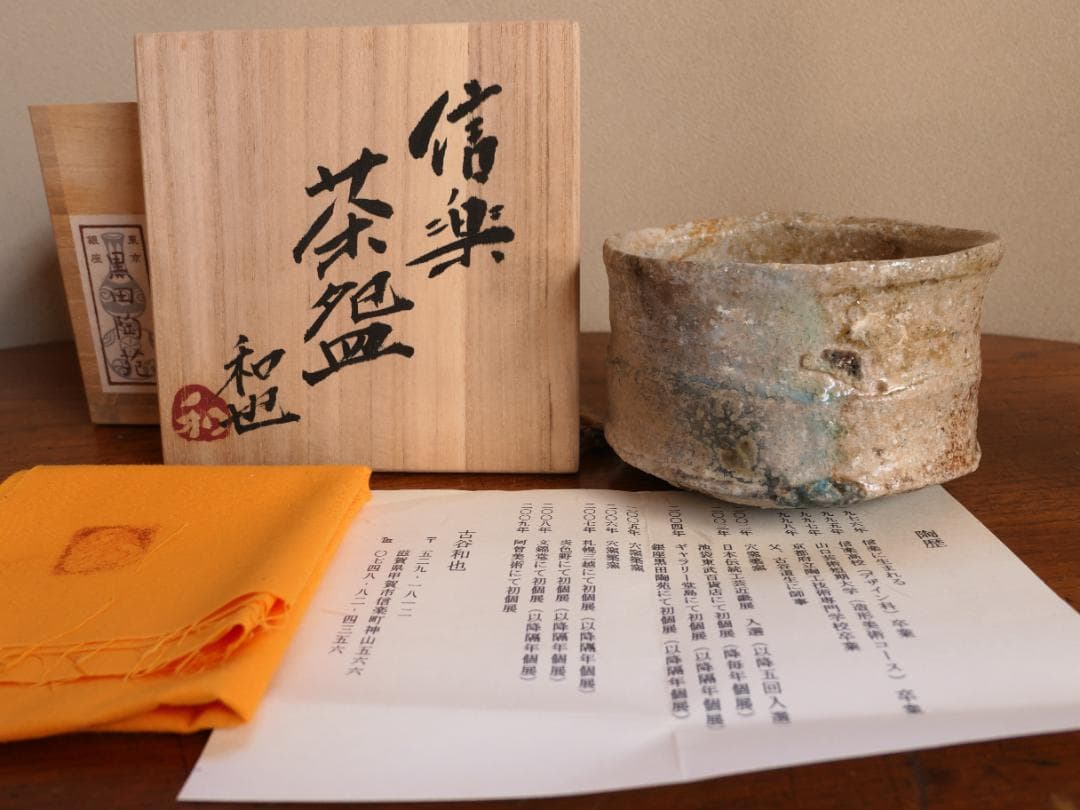 信楽
茶盌
和也
東京
銀座
黒田陶苑
陶歴
一九七六年 信楽に生まれる
一九九五年 信楽高校(デザイン科)卒業
一九九七年 山口芸術短期大学(造形美術コース)卒業
一九九八年 京都府立陶工技術専門学校卒業
父、古谷道生に師事
穴窯築窯
日本伝統工芸近畿展 入選(以降五回入選)
池袋東武百貨店にて初個展(降毎年個展)
二〇〇四年 ギャラリー堂島にて初個展(以降隔年個展)
銀座黒田陶苑にて初個展(以降隔年個展)
二〇〇五年 穴窯築窯
二〇〇六年 穴窯築窯
二〇〇七年 札幌三越にて初個展(以降隔年個展)
炎色野にて初個展(以降隔年個展)
二〇〇八年 にて初個展(以降隔年個展)
二〇〇九年 阿曾美術にて初個展
古谷和也
〒五二九・一八一二
滋賀県甲賀市信楽町神山五六六
☎〇七四八・八二・四三五六